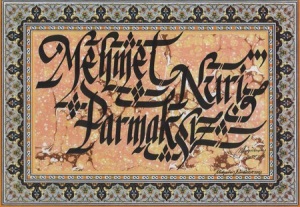 Mehmet Nuri
Parmaksız